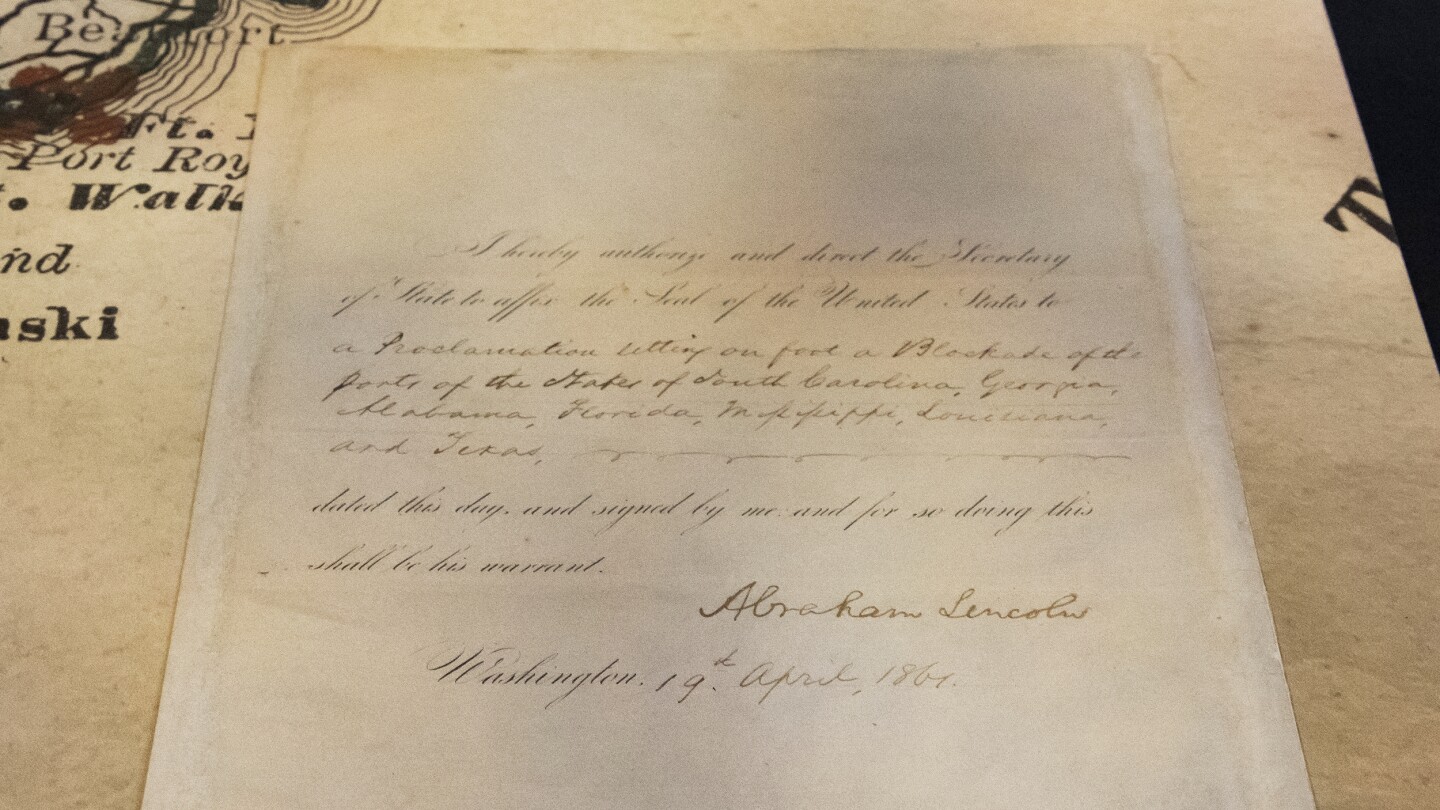 Beaufort
Ft.
Port Roy
. Walk
nd
aski
T
I hereby authorize and direct the Secretary
of State to affix the Seal of the United States to
a Proclamation setting on foot a Blockade of the
ports of the States of South Carolina, Georgia,
Alabama, Florida, Mississippi, Louisiana,
and Texas,
dated this day, and signed by me: and for so doing this
shall be his warrant.
Abraham Lincoln
Washington, 19th April, 1861.